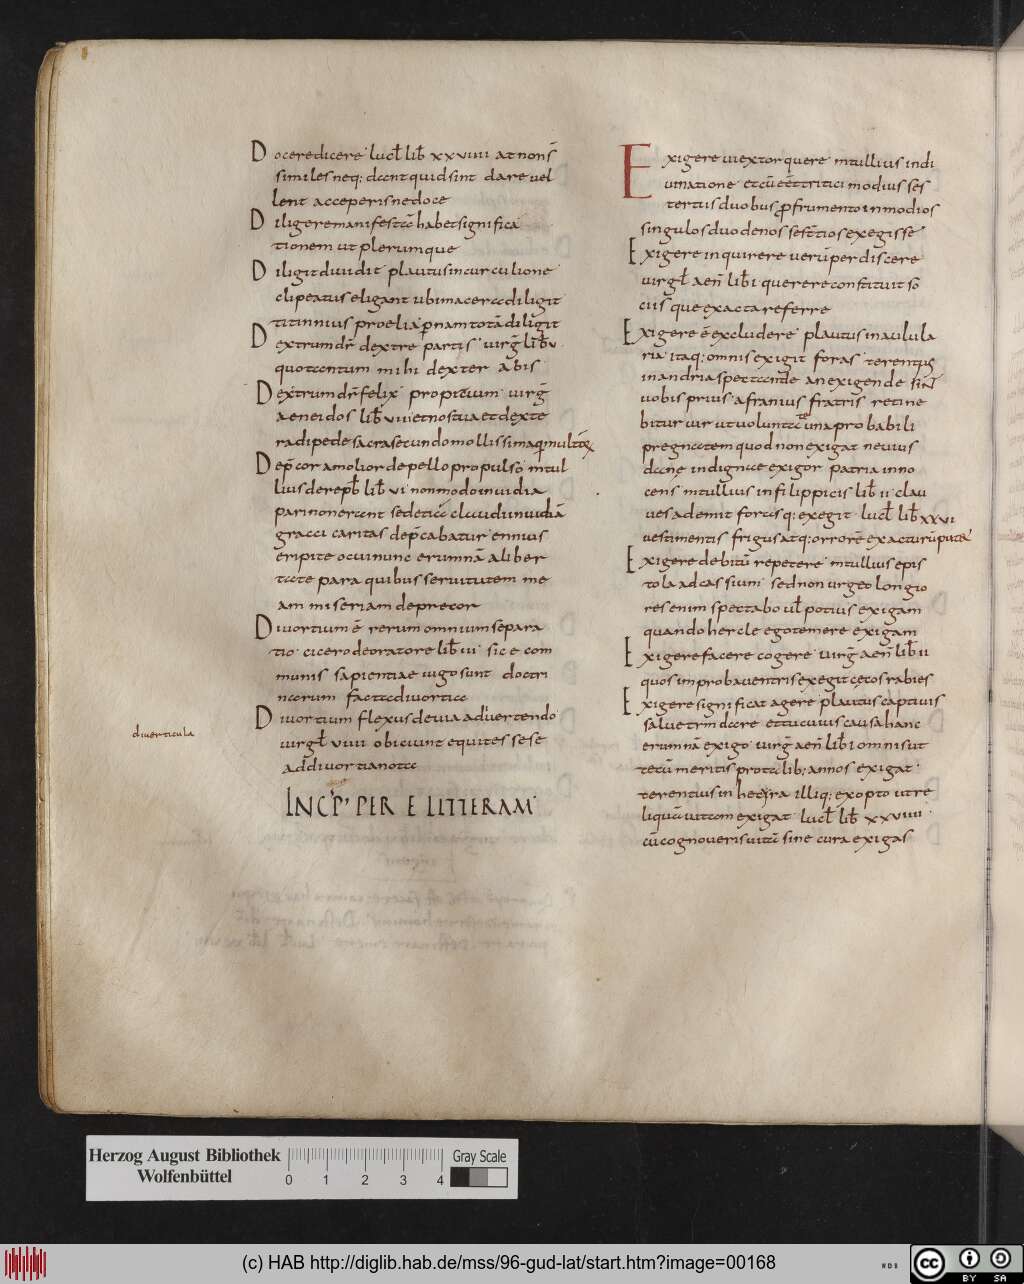 Doceredicere lucł lib̄ xxviiii atnonś
similesneq; docentquidsint dare vel
lent acceperisnedoce
Diligeremanifestum habetsignifica
tionem ut plerumque
Diligitdividit plautusincurculione
clipeatuseligant ubimacerdiligit
titinnius proelia
Dextrum dr̄ dextre partis virḡ lib̄ v
quotcentum mihi dexter abis
Dextrumdr̄ felix propitium virḡ
aeneidos lib̄ viii etnostuaetdexte
radipedesacrasecundo
Dep̄cor amolior depello propulso mtul
liusderepb̄ lib̄ vi nonmodoinvidia
parinonerant sedetiā claudiinvidiā
gracci caritas dep̄cabatur ennius
eripite ocvinunc erumnā aliber
tate para quibus servitutem me
am miseriam deprecor
Divortium ē rerumomniumsepara
tio cicerodeoratore lib̄ iii sice com
munis sapientiae iugosunt doctri
narum factadivortia
Divortium flexusdevia advertendo
virgł viiii obiciunt equites sese
addivortianota
diverticula
INCP̄ PER E LITTERAM
Exigere uiextorquere mtullius indi
uinatione etcū ēēt tritici modius ses
tertiis duobus p̄frumento inmodios
singulosduodenos sestertiosexegisse
Exigere inquirere verū perdiscere
virgł aen̄ lib̄ i querere constituit so
ciis que exacta referre
Exigere ē excludere plautus inaulula
ria itaq; omnis exigit foras terentius
inandria spectande an exigende sint
vobis prius afranius fratris retine
bitur vir ut voluntate una probabili
pregnatem quod non exigat nevius
dane indignate exigor patria inno
cens mtullius infilippicis lib̄ ii clau
ves ademit forasq; exegit lucł lib̄ xxvi
vestimentis frigus atq; orrorē exacturū putet
Exigere debitū repetere mtullius epis
tola adcassium sednon urgeo longio
res enim spectabo vł potius exigam
quando hercle egotemere exigam
Exigere facere cogere virḡ aen̄ lib̄ ii
quosimprobaventrisexegitcecosrabies
Exigere significat agere plautus captiuis
salvetrm dare ettucuius causa hanc
erumnā exigo virḡ aen̄ lib̄ i omnis ut
tecū meritis prota lib; annos exigat
terentius in hecyra illiq; exopto ut re
liquā vitam exigat lucł lib̄ xxviiii
cū cognoveris vitā sine cura exigas
Herzog August Bibliothek
Wolfenbüttel
0 1 2 3 4
Gray Scale
(c) HAB http://diglib.hab.de/mss/96-gud-lat/start.htm?image=00168
WDB
cc BY SA